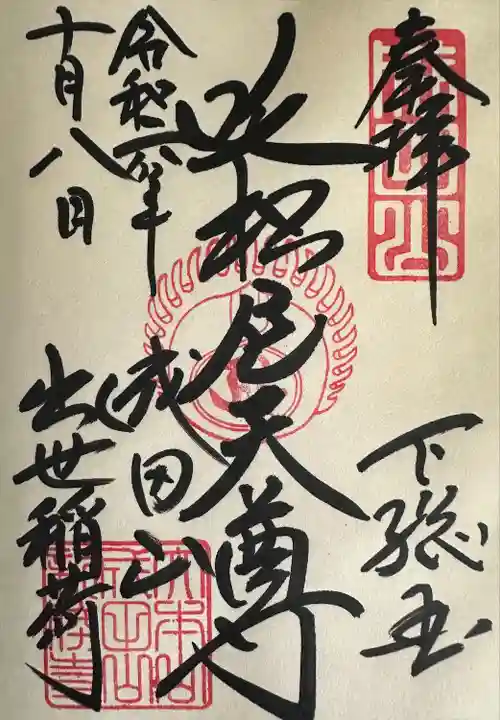 奉拝
下総国
吒枳尼天尊
令和六年
成田山
十月八日
出世稲荷